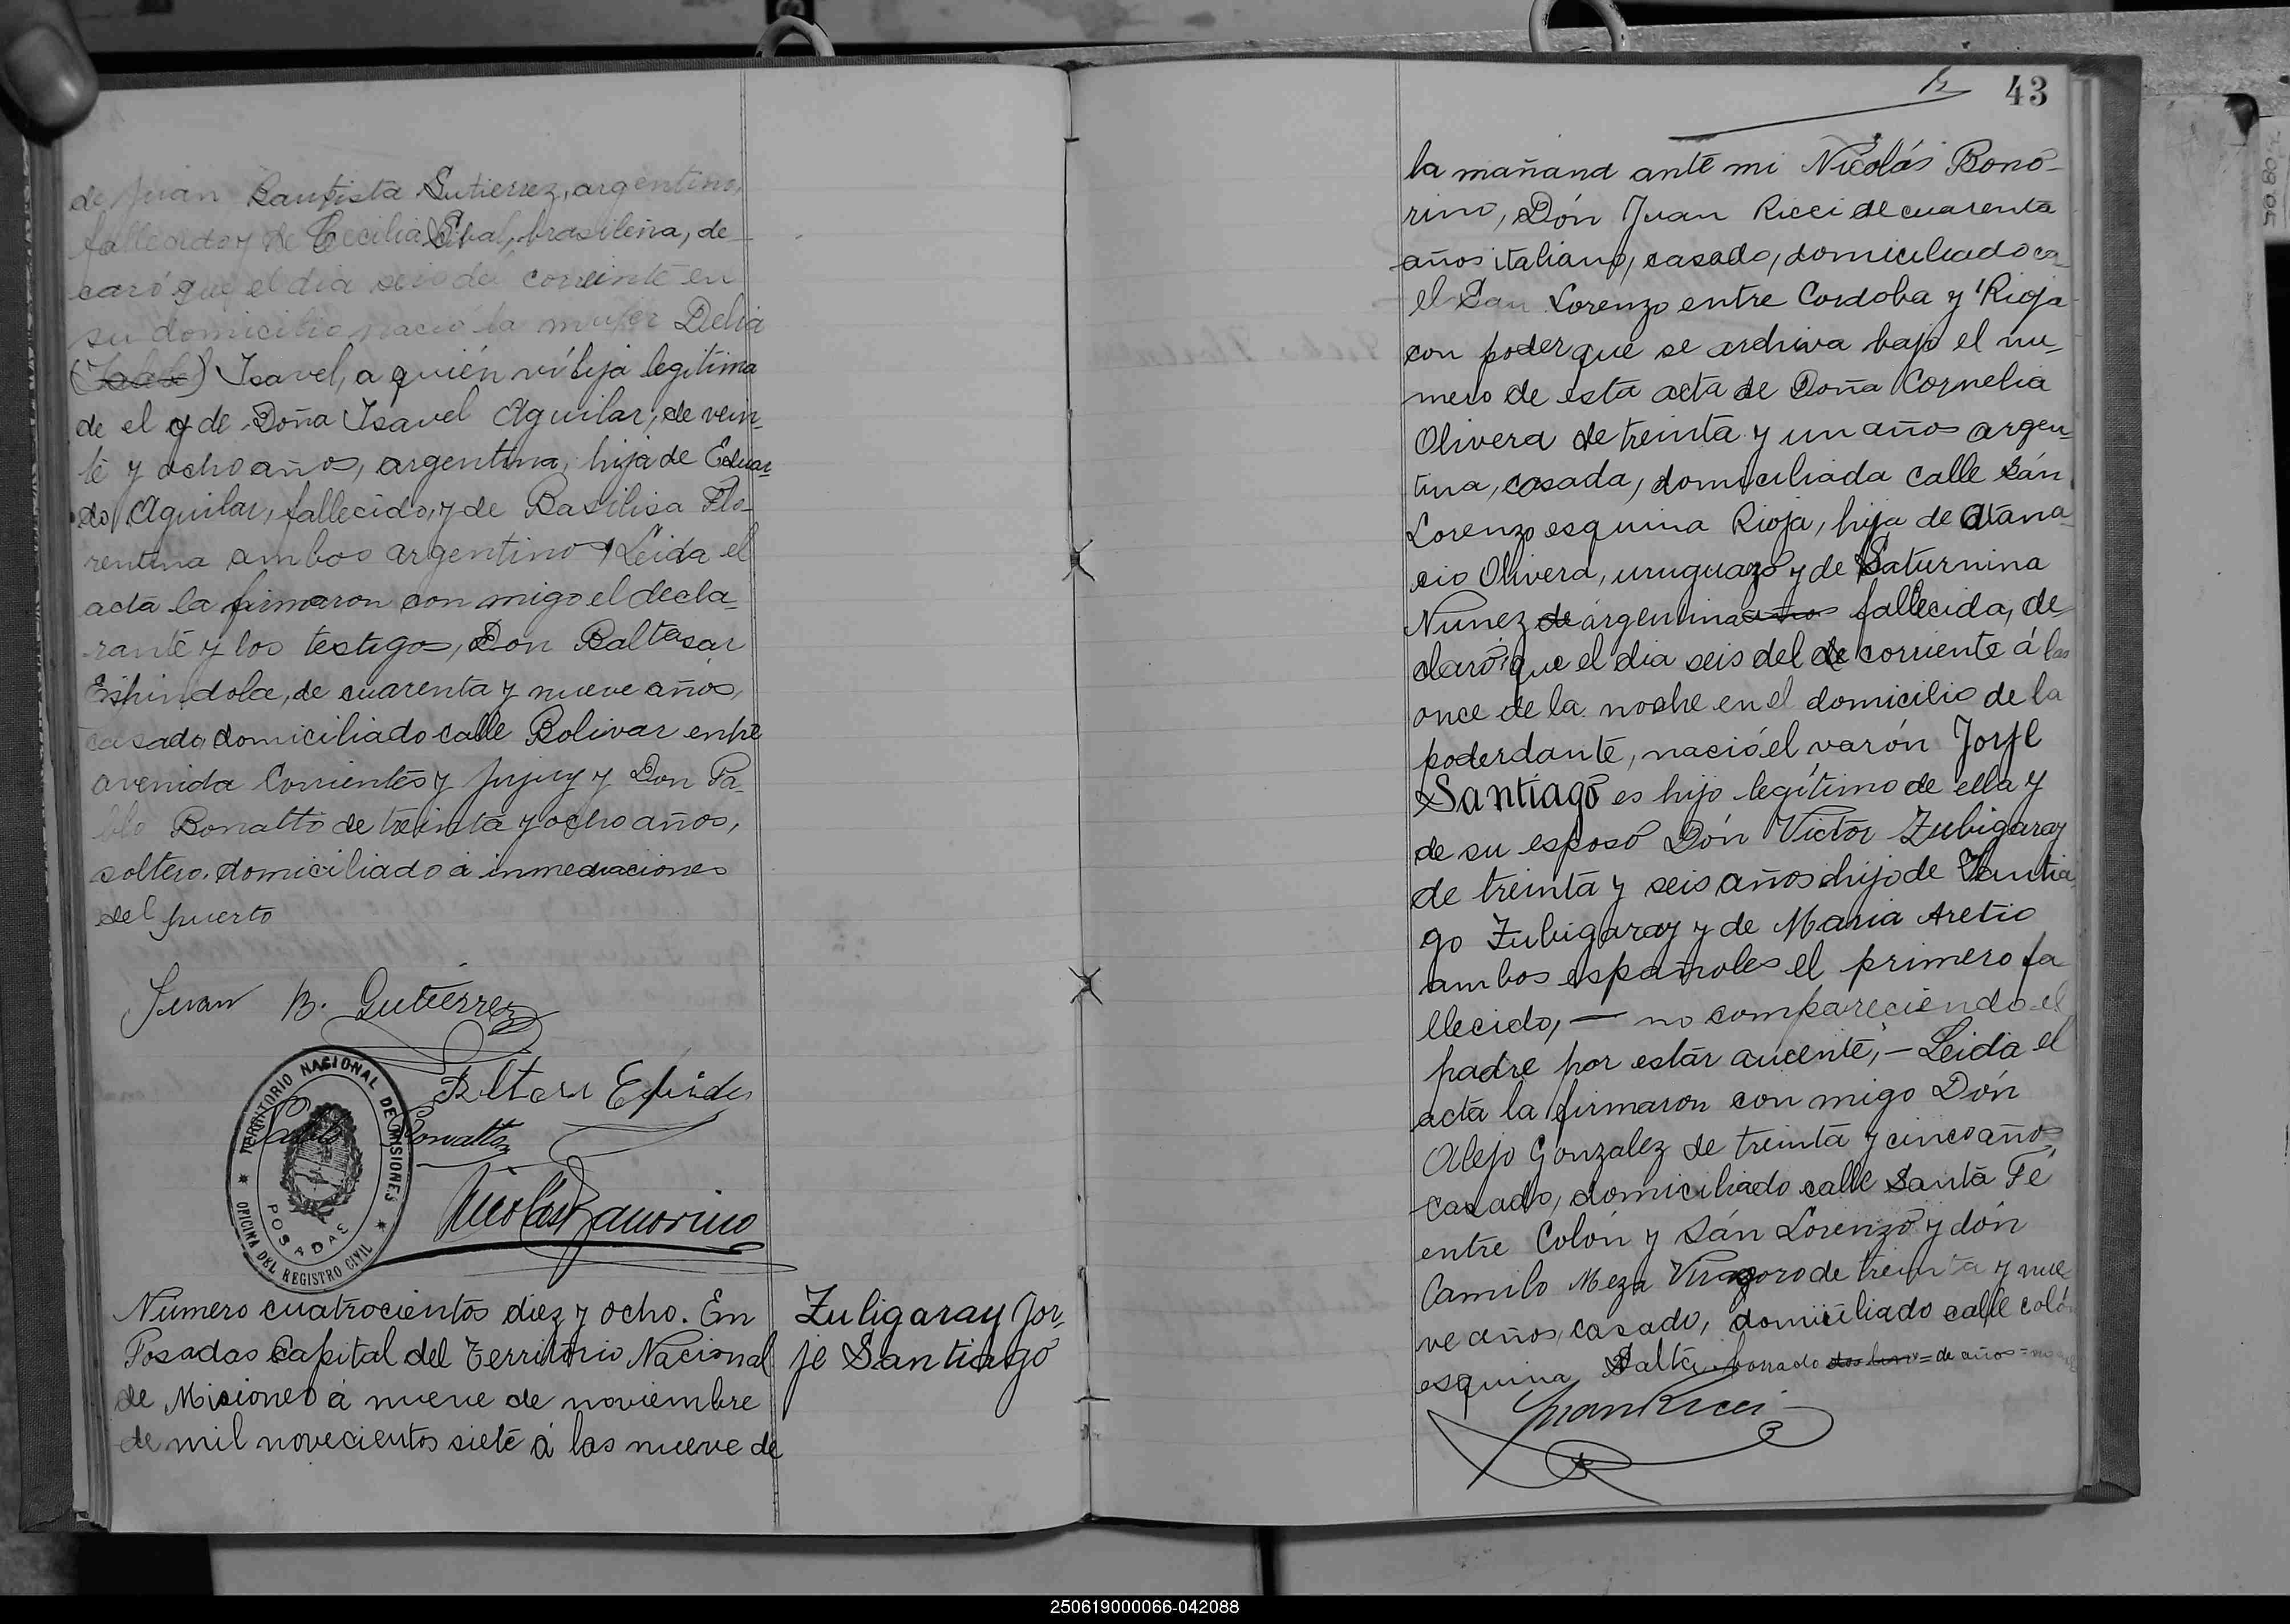 de Juan Bautista Gutierrez, argentino,
fallecido y de Cecilia, brasileña, de
caró que el dia seis del corriente en
su domicilio nació la mujer Delia
Isavel, a quién ví hija legítima
de el y de Doña Isavel Aguilar, de vein
te y ocho años, argentina, hija de Eduar
do Aguilar, fallecido, y de Basilisa Flo
rentina ambos argentinos, Leida el
acta la firmaron con migo el decla
rante y los testigos, Don Baltasar
Espindola, de cuarenta y nueve años,
casado, domiciliado calle Bolivar entre
avenida Corrientes y Jujuy y Don Pa
blo Bonatto de treinta y ocho años,
soltero, domiciliado á inmediaciones
del puerto
Juan B. Gutierrez
Pablo Bonatto
Nicolás Bonorino
TERRITORIO NACIONAL DE MISIONES
POSADAS
OFICINA DEL REGISTRO CIVIL
Número cuatrocientos diez y ocho. En
Posadas Capital del Territorio Nacional
de Misiones á nueve de noviembre
de mil novecientos siete á las nueve de
Zuligaray Jor
je Santiago
43
la mañana ante mi Nicolás Bono-
rino, Dón Juan Ricci de cuarenta
años italiano, casado, domiciliado ca
el San Lorenzo entre Cordoba y Rioja
con poder que se archiva bajo el nu
mero de esta acta de Doña Cornelia
Olivera de treinta y un años argen
tina, casada, domiciliada calle Sán
Lorenzo esquina Rioja, hija de Atana
cio Olivera, uruguayo y de Saturnina
Nunez de argentina fallecida, de
claró que el dia seis del de corriente á las
once de la noche en el domicilio de la
poderdante, nació el varón Jorje
Santiago es hijo legítimo de ella y
de su esposo Dón Victor Zubigaray
de treinta y seis años hijo de Santia
go Zubigaray y de Maria Aretio
ambos españoles el primero fa
llecido, — no compareciendo el
padre por estár aucente, — Leida el
acta la firmaron con migo Dón
Alejo Gonzalez de treinta y cinco años,
casado, domiciliado calle Santa Fé
entre Colón y Sán Lorenzo y dón
Camilo Meza Virasoro de treinta y nue
ve años, casado, domiciliado calle colón
esquina Salta borrado = de años =
Juan Ricci
250619000066-042088